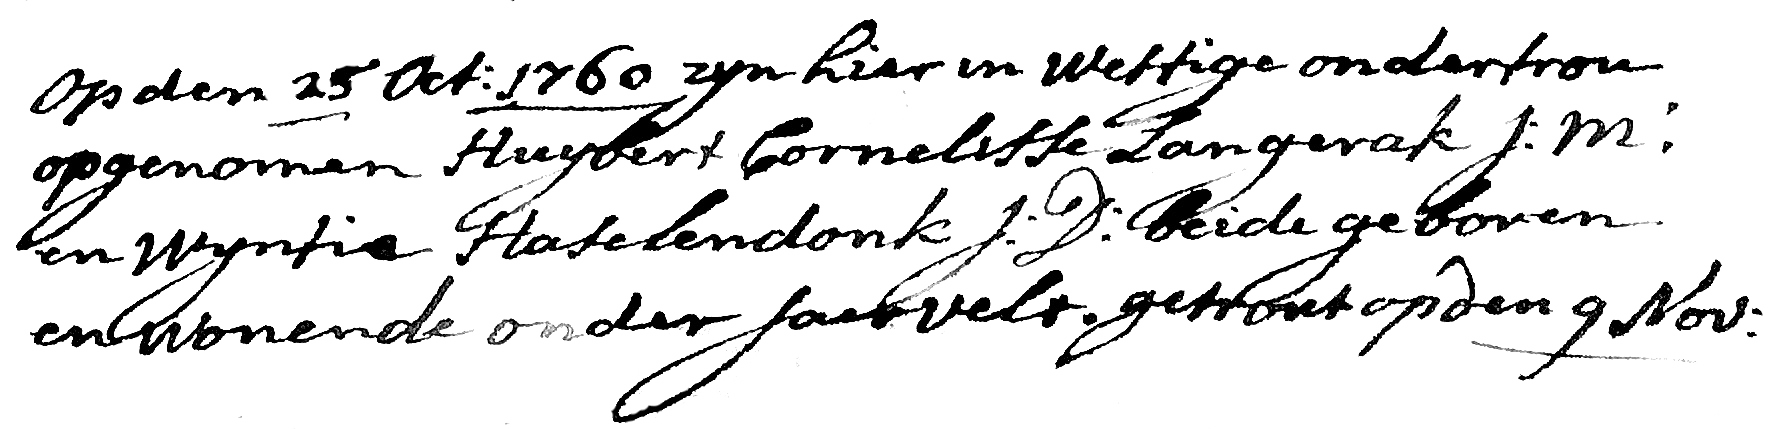 Op den 25 Oct: 1760 zyn hier in Wettige ondertrou
opgenomen Huybert Cornelisse Langerak J: M:
en Wyntie Haselendonk J: D: beide geboren
en wonende onder Jaarvelt. getrout op den 9 Nov: